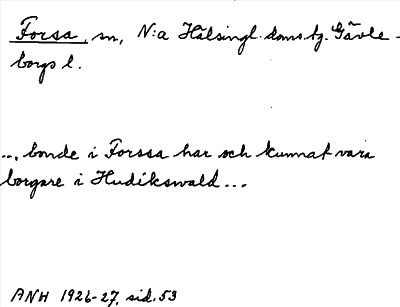 Forsa, sn, N:a Hälsingl. doms tg. Gävle-
borgs l.
... bonde i Forssa har och kunnat vara
borgare i Hudikswald ...
ANH 1926-27, sid. 53